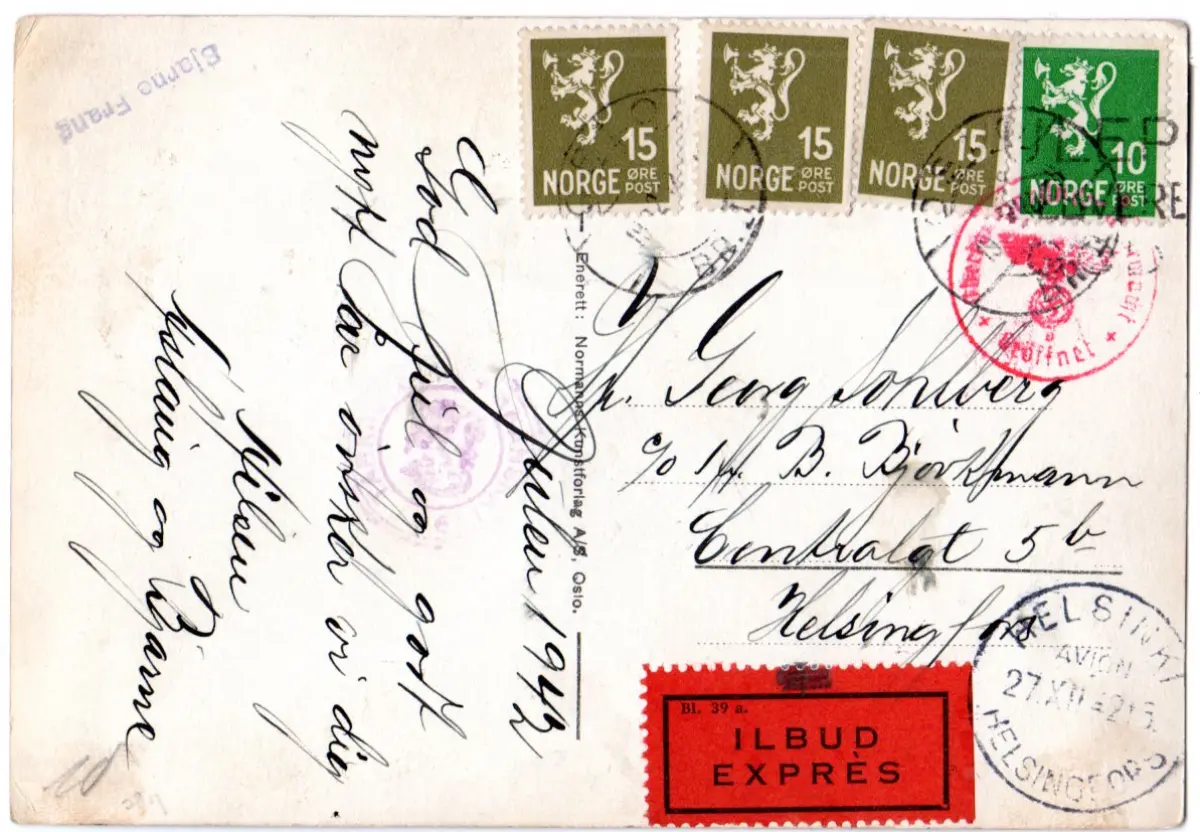 Bjarne Frang
15
NORGE ØRE POST
15
NORGE ØRE POST
15
NORGE ØRE POST
10
NORGE ØRE POST
Julen 1942
God Jul og godt
nytt år ønsker vi dig.
Hilsen
Solveig og Bjarne
Enerett: Normanns Kunstforlag A/S, Oslo.
Hr. Georg Sohlberg
c/o Hr. B. Björkmann
Centralgt 5 b
Helsingfors
geöffnet
HELSINKI
AVION
27.XII 42 15.
HELSINGFORS
Bl. 39 a.
ILBUD
EXPRÈS